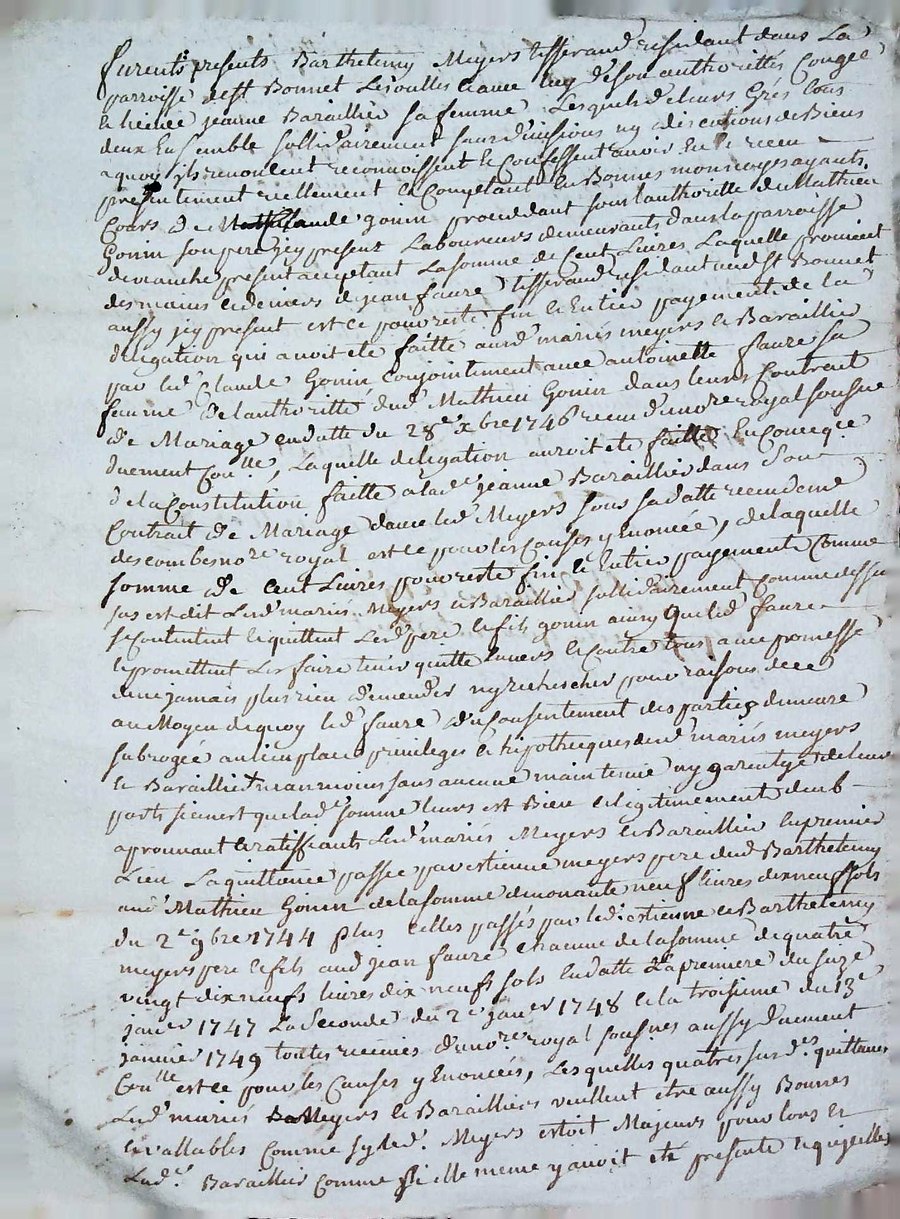 furents presents Barthelemy Meyers tisserand residant dans La
parroisse de st Bonnet Lesoulles et avec luy de son authorittés
licitée jeanne Baraillier sa femme Lesquels de leurs Grés tous
deux Ensemble sollidairement sans divisions ny discutions de Biens
a quoy ils renoncent reconnoissent et Confessent avoir Eu et receu
presentement reellement et Comptant En Bonnes monnoyes ayants
Cours de Claude gonin proceddant sous lauthoritté de Mathieu
Gonin son pere jcy present Laboureurs demeurants dans la parroisse
de present acceptant La somme de Cent Livres Laquelle provient
des mains et deniers de jean faure tisserand residant aud st Bonnet
aussy jcy present est ce pour reste fin et Entier payement de la
dellegation qui avoit ete faitte aud mariés meyers et Baraillier
par led Claude Gonin Conjointement avec antoinette faure sa
femme de lauthoritté dud Mathieu Gonin dans leurs Contrait
de Mariage en datte du 28e xbre 1746 receu dunore royal sousne
duement Conlle, Laquelle dellegation auroit ete faitte En
de la Constitution faitte a lade jeanne Baraillier dans Son
Contrait de Mariage davec led Meyers sous sa datte receu de me
descombes nore royal est ce pour les Causes y Enoncée, de laquelle
somme de Cent Livres pour reste fin et Entier payement Comme
sus est dit Lesd mariés Meyers et Baraillier sollidairement Comme dessus
se Contentent et quittent Lesd pere et fils gonin ainsy que led faure
et promettent Les faire tenir quitte Envers et Contre tous avec promesse
de ne jamais plus rien demender ny rechercher pour raisons de ce
au Moyen de quoy led faure du Consentement des parties demeure
subrogée au lieu place privileges et hipotheques desd mariés meyers
et Baraillier neanmoins sans aucune maintenue ny garentye de leur
part si ce nest que lade somme leurs est Bien et legitimement deub
aprouvant et ratiffiants Lesd mariés Meyers et Baraillier En premier
Lieu La quittance passée par estienne meyers pere dud Barthelemy
aud Mathieu Gonin de la somme de nonante neuf livres dix neuf sols
du 2e 9bre 1744 plus celles passés par led estienne et Barthelemy
meyers pere et fils aud jean faure Chacune de la somme de quatre
vingt dix neufs livres dix neufs sols En datte La premiere du
janer 1747 La Seconde du 2e janer 1748 et la troisieme du 13e
janvier 1749 toutes receües dunore royal sousnes aussy duement
Conlle est ce pour les Causes y Enoncées, Lesquelles quatres susdes quittances
Lesd mariés Meyers et Barailliers veullent etre aussy Bonnes
et vallables Comme sy led Meyers estoit Majeurs pour lors et
Lade Baraillier Comme si elle meme y avoit ete presente